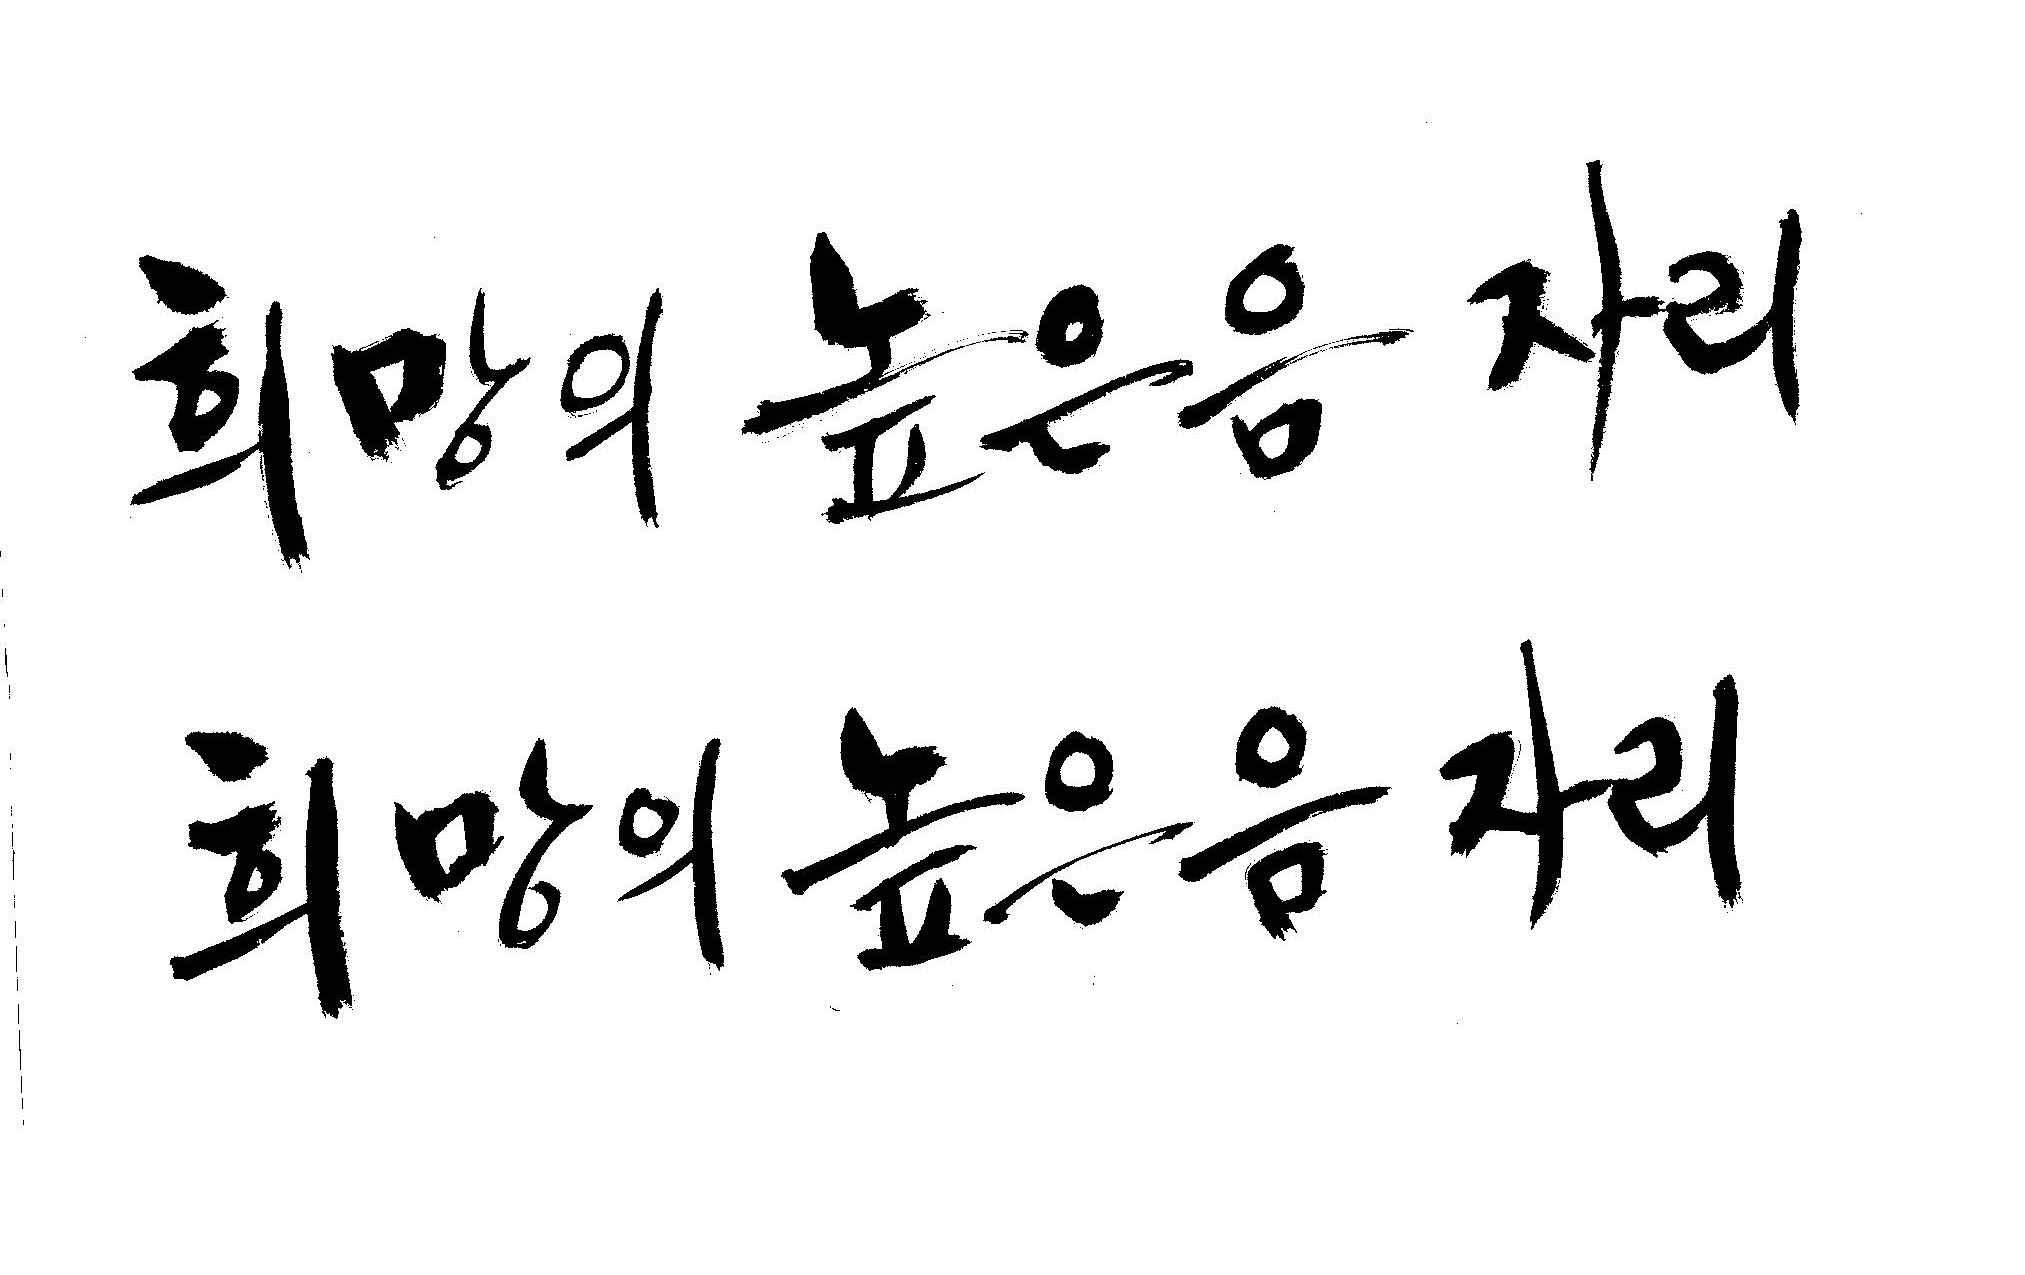 희망의 높은음 자리
희망의 높은음 자리